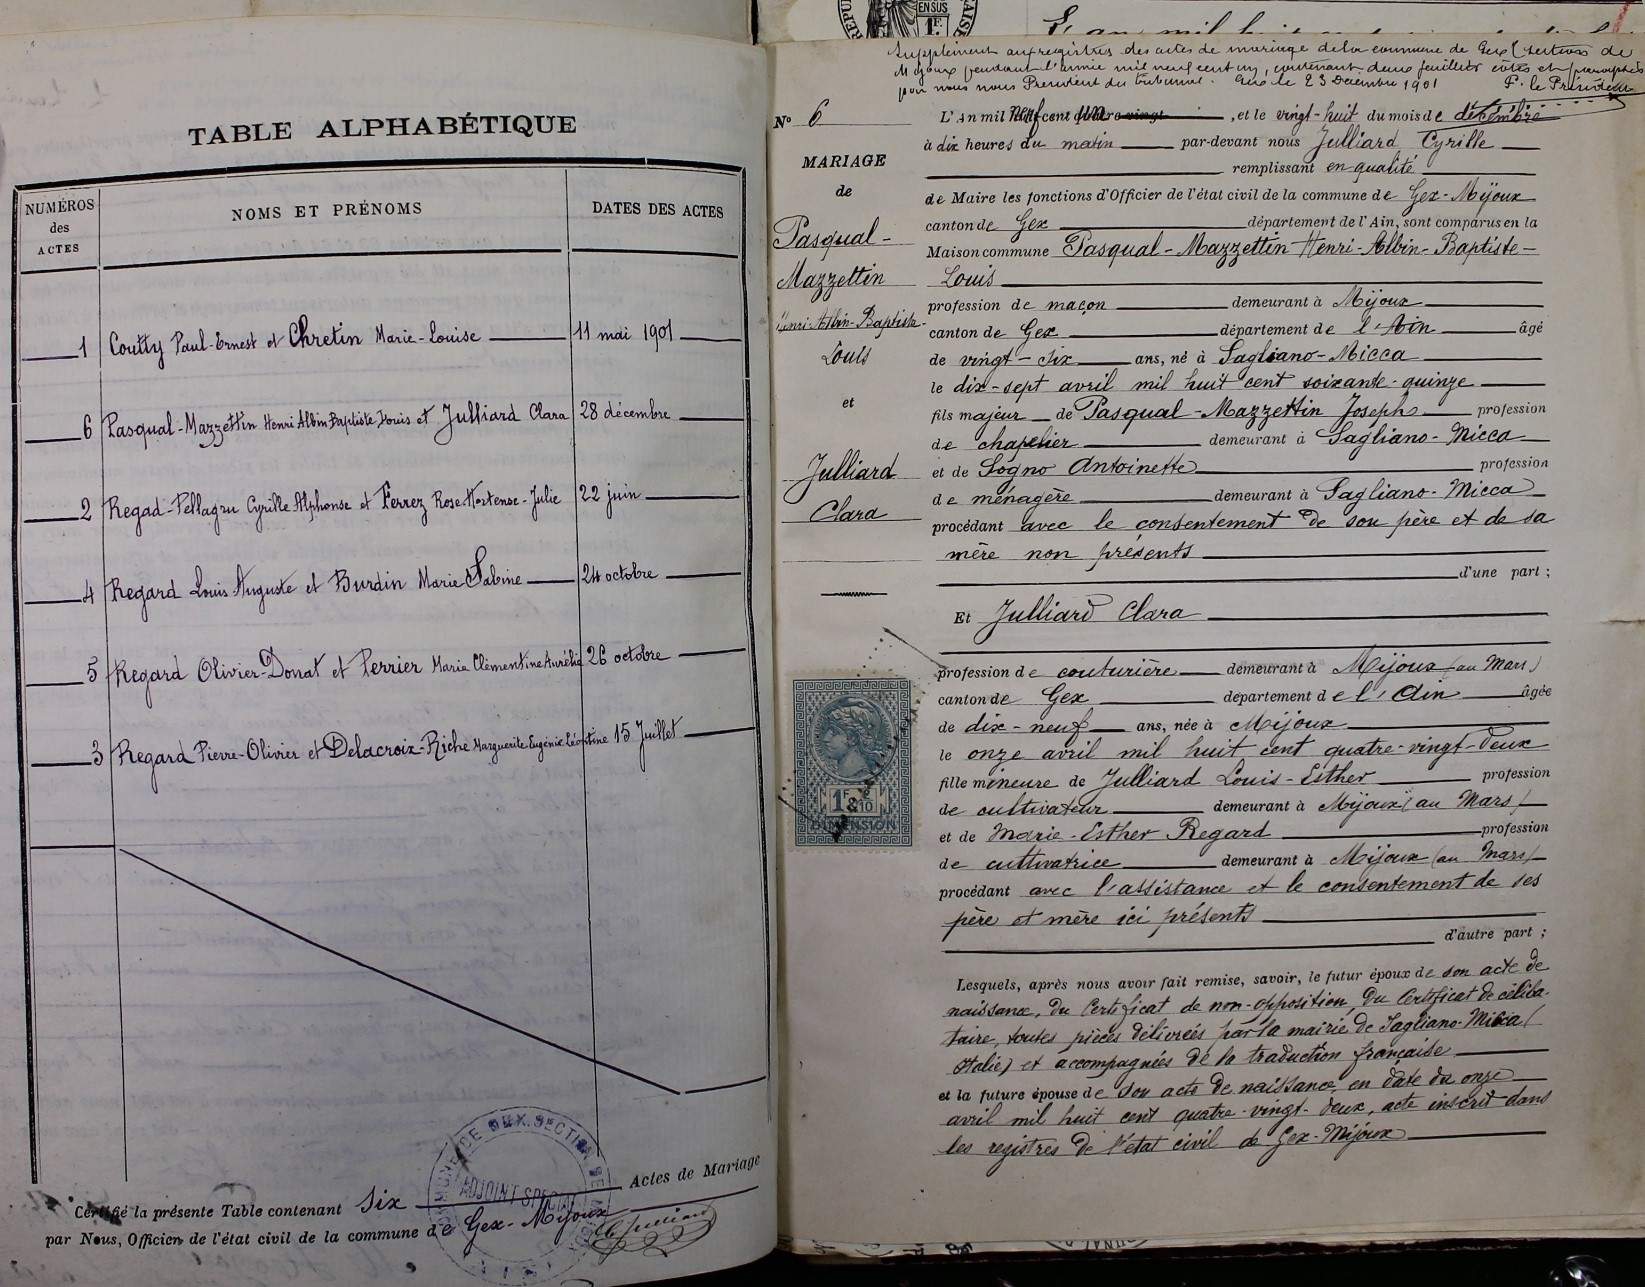 TABLE ALPHABÉTIQUE
NUMÉROS
des
ACTES
NOMS ET PRÉNOMS
DATES DES ACTES
1 Coutty Paul-Ernest et Chretin Marie-Louise 11 mai 1901
6 Pasqual-Mazzettin Henri Albin Baptiste Louis et Julliard Clara 28 décembre
2 Regad-Pellagru Cyrille Alphonse et Ferrez Rose-Hortense-Julie 22 juin
4 Regard Louis Auguste et Burdin Marie Sabine 24 octobre
5 Regard Olivier-Donat et Perrier Marie Clémentine Aurélie 26 octobre
3 Regard Pierre-Olivier et Delacroix-Riche Marguerite Eugénie Léontine 15 Juillet
Certifié la présente Table contenant Six Actes de Mariage
par Nous, Officier de l'état civil de la commune de Gex-Mijoux
ADJOINT SPECIAL
Supplément aux registres des actes de mariage de la commune de Gex (section de
Mijoux pendant l'année mil neuf cent un, contenant deux feuillets cotés et paraphés
par nous Président du tribunal. Gex le 23 Décembre 1901 P. le Président
N° 6
MARIAGE
de
Pasqual-
Mazzettin
Henri-Albin-Baptiste-
Louis
et
Julliard
Clara
1F &
DIMENSION
L'An mil neuf cent un, et le vingt-huit du mois de décembre
à dix heures du matin par-devant nous Julliard Cyrille
remplissant en qualité
de Maire les fonctions d'Officier de l'état civil de la commune de Gex-Mijoux
canton de Gex département de l'Ain, sont comparus en la
Maison commune Pasqual-Mazzettin Henri-Albin-Baptiste-
Louis
profession de maçon demeurant à Mijoux
canton de Gex département de l'Ain âgé
de vingt-six ans, né à Sagliano-Micca
le dix-sept avril mil huit cent soixante-quinze
fils majeur de Pasqual-Mazzettin Joseph profession
de chapelier demeurant à Sagliano-Micca
et de Sogno Antoinette profession
de ménagère demeurant à Sagliano-Micca
procédant avec le consentement de son père et de sa
mère non présents
d'une part ;
Et Julliard Clara
profession de couturière demeurant à Mijoux (au Mars)
canton de Gex département de l'Ain âgée
de dix-neuf ans, née à Mijoux
le onze avril mil huit cent quatre-vingt-deux
fille mineure de Julliard Louis-Esther profession
de cultivateur demeurant à Mijoux (au Mars)
et de Marie-Esther Regard profession
de cultivatrice demeurant à Mijoux (au Mars)
procédant avec l'assistance et le consentement de ses
père et mère ici présents
d'autre part ;
Lesquels, après nous avoir fait remise, savoir, le futur époux de son acte de
naissance, du Certificat de non-opposition, du Certificat de céliba-
taire, toutes pièces délivrées par la mairie de Sagliano-Micca (
Italie) et accompagnées de la traduction française
et la future épouse de son acte de naissance en date du onze
avril mil huit cent quatre-vingt-deux, acte inscrit dans
les registres de l'état civil de Gex-Mijoux